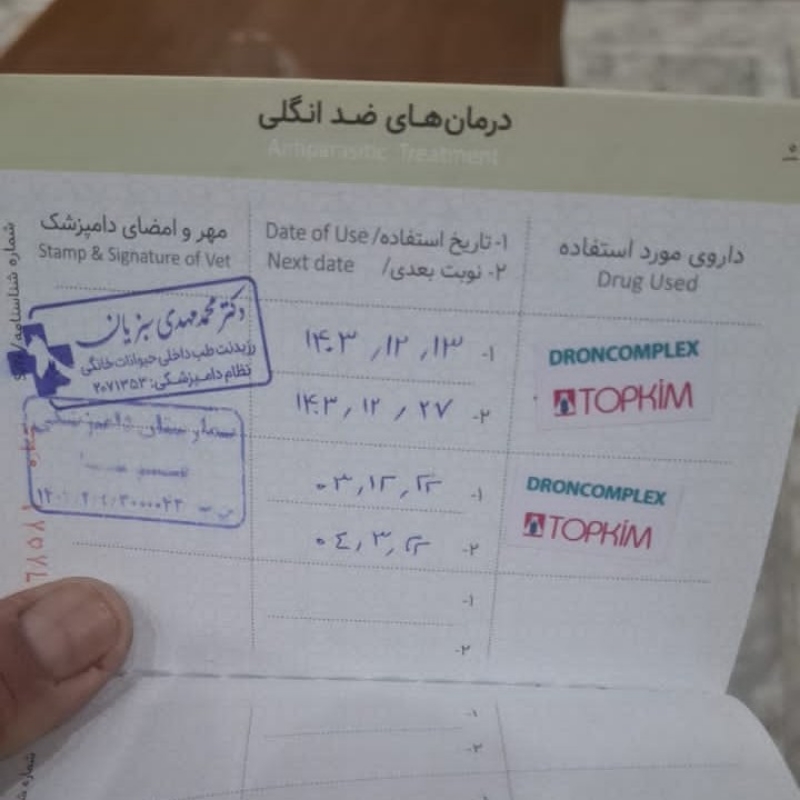 درمان‌های ضد انگلی
Antiparasitic Treatment
داروی مورد استفاده
Drug Used
۱- تاریخ استفاده/ Date of Use
۲- نوبت بعدی/ Next date
مهر و امضای دامپزشک
Stamp & Signature of Vet
شماره شناسنامه/
DRONCOMPLEX
TOPKİM
۱- ۱۴۰۳/۱۲/۱۳
۲- ۱۴۰۳/۱۲/۲۷
دکتر محمد مهدی سبزیان
رزیدنت طب داخلی حیوانات خانگی
نظام دامپزشکی: ۲۰۷۱۳۵۳
DRONCOMPLEX
TOPKİM
۱- ۰۳/۱۲/۲۲
۲- ۰۴/۳/۲۲
۱-
۲-
۱-
۲-